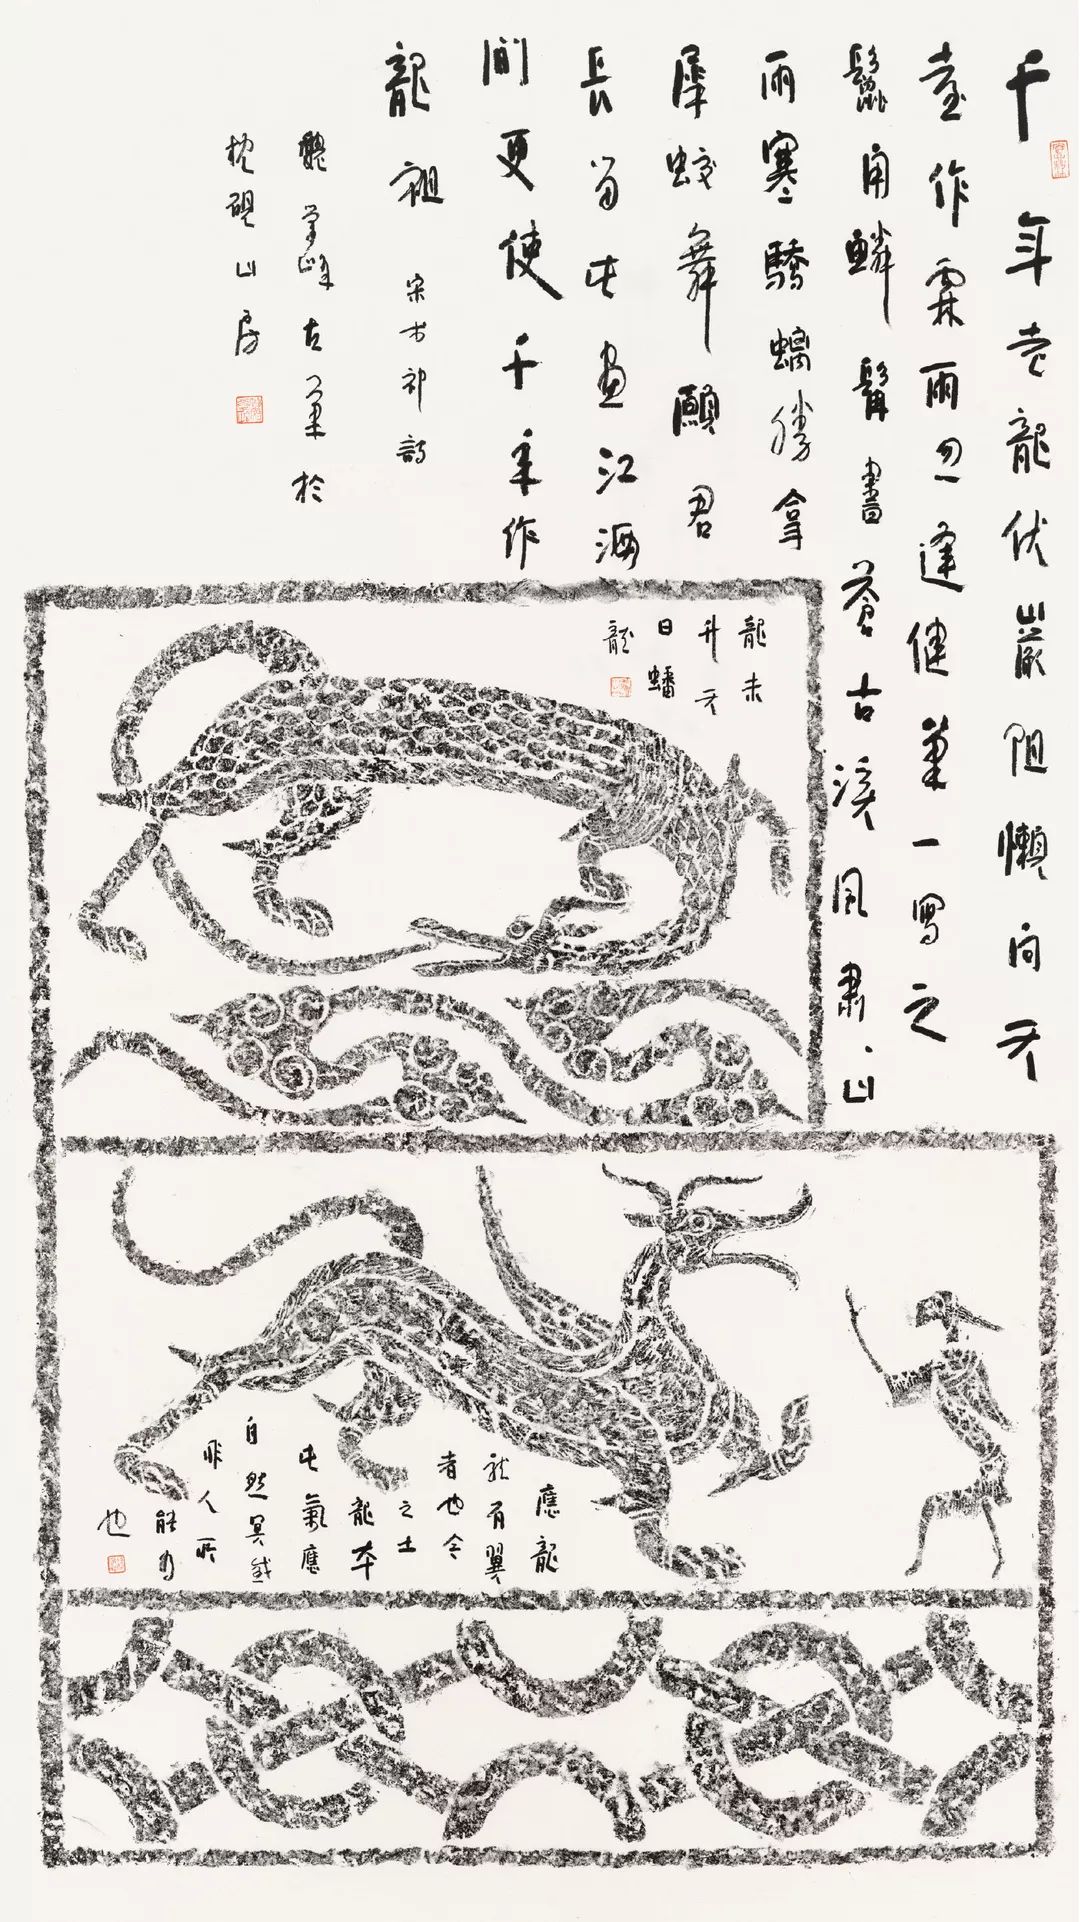 千年老龍伏巖阻懶向天
臺作霖雨忽逢健筆一寫之
鬣角鱗髯書蒼古溪風肅〻山
雨寒驕螭勝拏
孱蛟舞願君
長留此畫江湖
間更使千年作
龍祖 宋方祁詩
魏學峰左筆於
枕硯山房
龍未
升天
日蟠
龍
應龍
龍有翼
者也今
之土
龍本
此氣應
自然冥感
非人所
能為
也